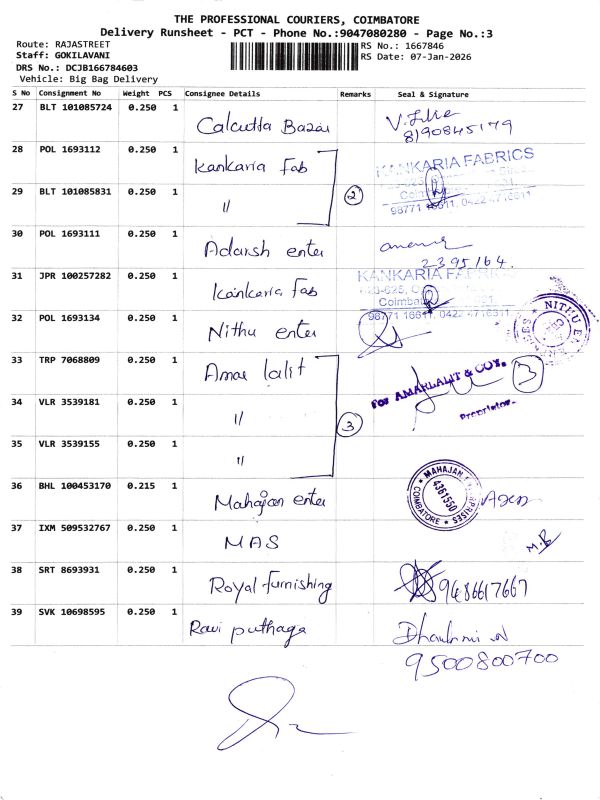 THE PROFESSIONAL COURIERS, COIMBATORE
Delivery Runsheet - PCT - Phone No.:9047080280 - Page No.:3
Route: RAJASTREET
Staff: GOKILAVANI
DRS No.: DCJB166784603
Vehicle: Big Bag Delivery
RS No.: 1667846
RS Date: 07-Jan-2026
S No Consignment No Weight PCS Consignee Details Remarks Seal & Signature
27 BLT 101085724 0.250 1 Calcutta Bazar
8190845179
28 POL 1693112 0.250 1 Kankaria Fab KANKARIA FABRICS
29 BLT 101085831 0.250 1 " 2
98771 16611, 0422 4716611
30 POL 1693111 0.250 1 Adarsh enter
2395164.
31 JPR 100257282 0.250 1 Kankaria Fab KANKARIA FABRICS
98771 16611, 0422 4716611
32 POL 1693134 0.250 1 Nithu enter
33 TRP 7068809 0.250 1 Amar lalit For AMARLALIT & COY. 3
34 VLR 3539181 0.250 1 " 3 Proprietor.
35 VLR 3539155 0.250 1 "
36 BHL 100453170 0.215 1 Mahajan enter MAHAJAN ENTERPRISES COIMBATORE 4361550
37 IXM 509532767 0.250 1 MAS M.B
38 SRT 8693931 0.250 1 Royal furnishing 9486617667
39 SVK 10698595 0.250 1 Ravi puthaga
9500800700